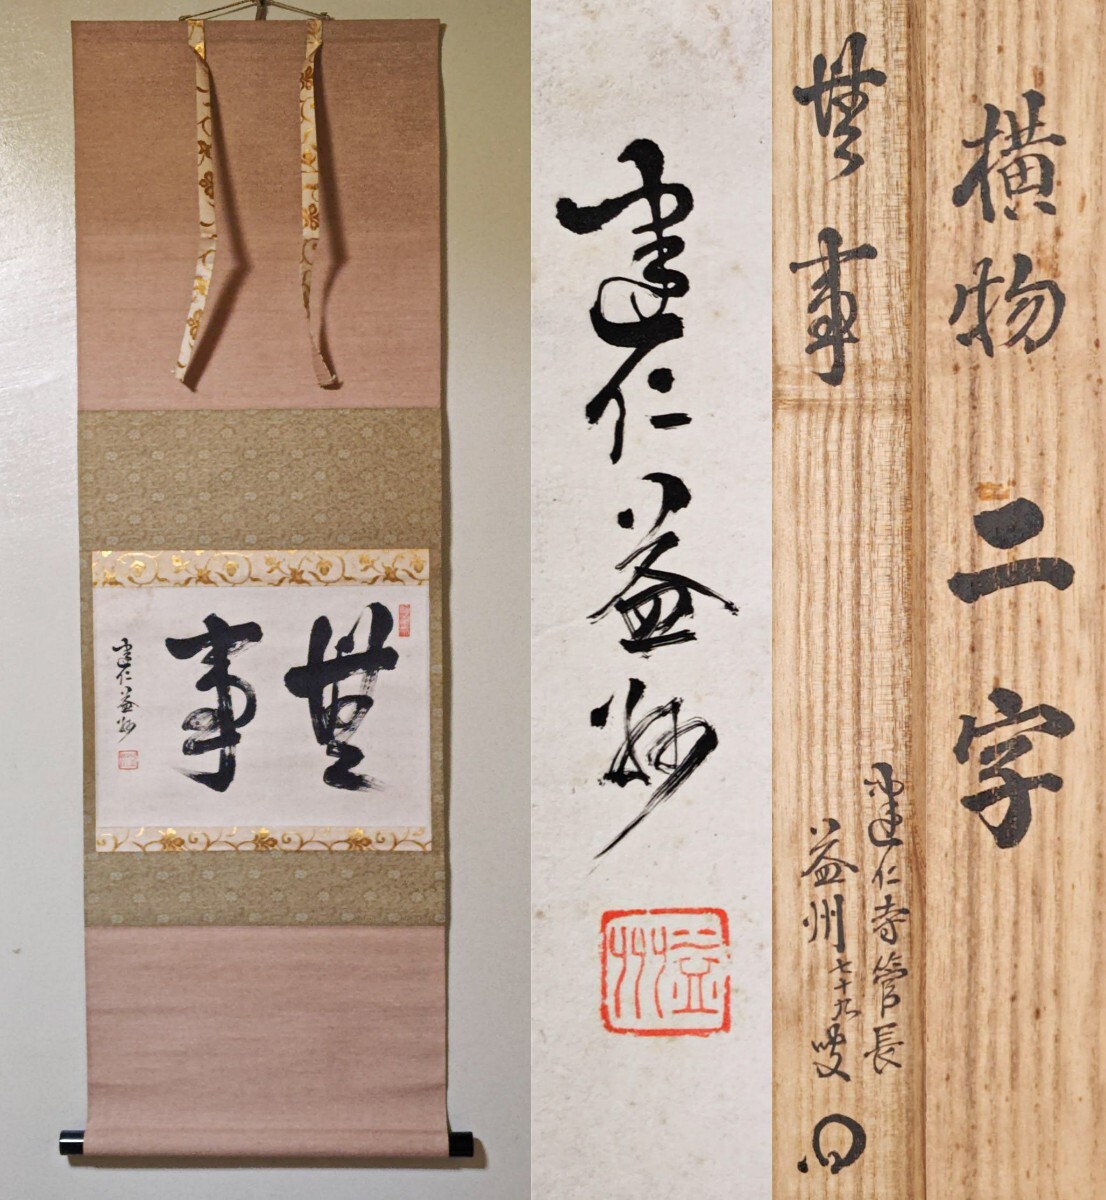 無事
建仁益州
建仁益州
益州
橫物 二字
無事
建仁寺管長
益州七十九叟